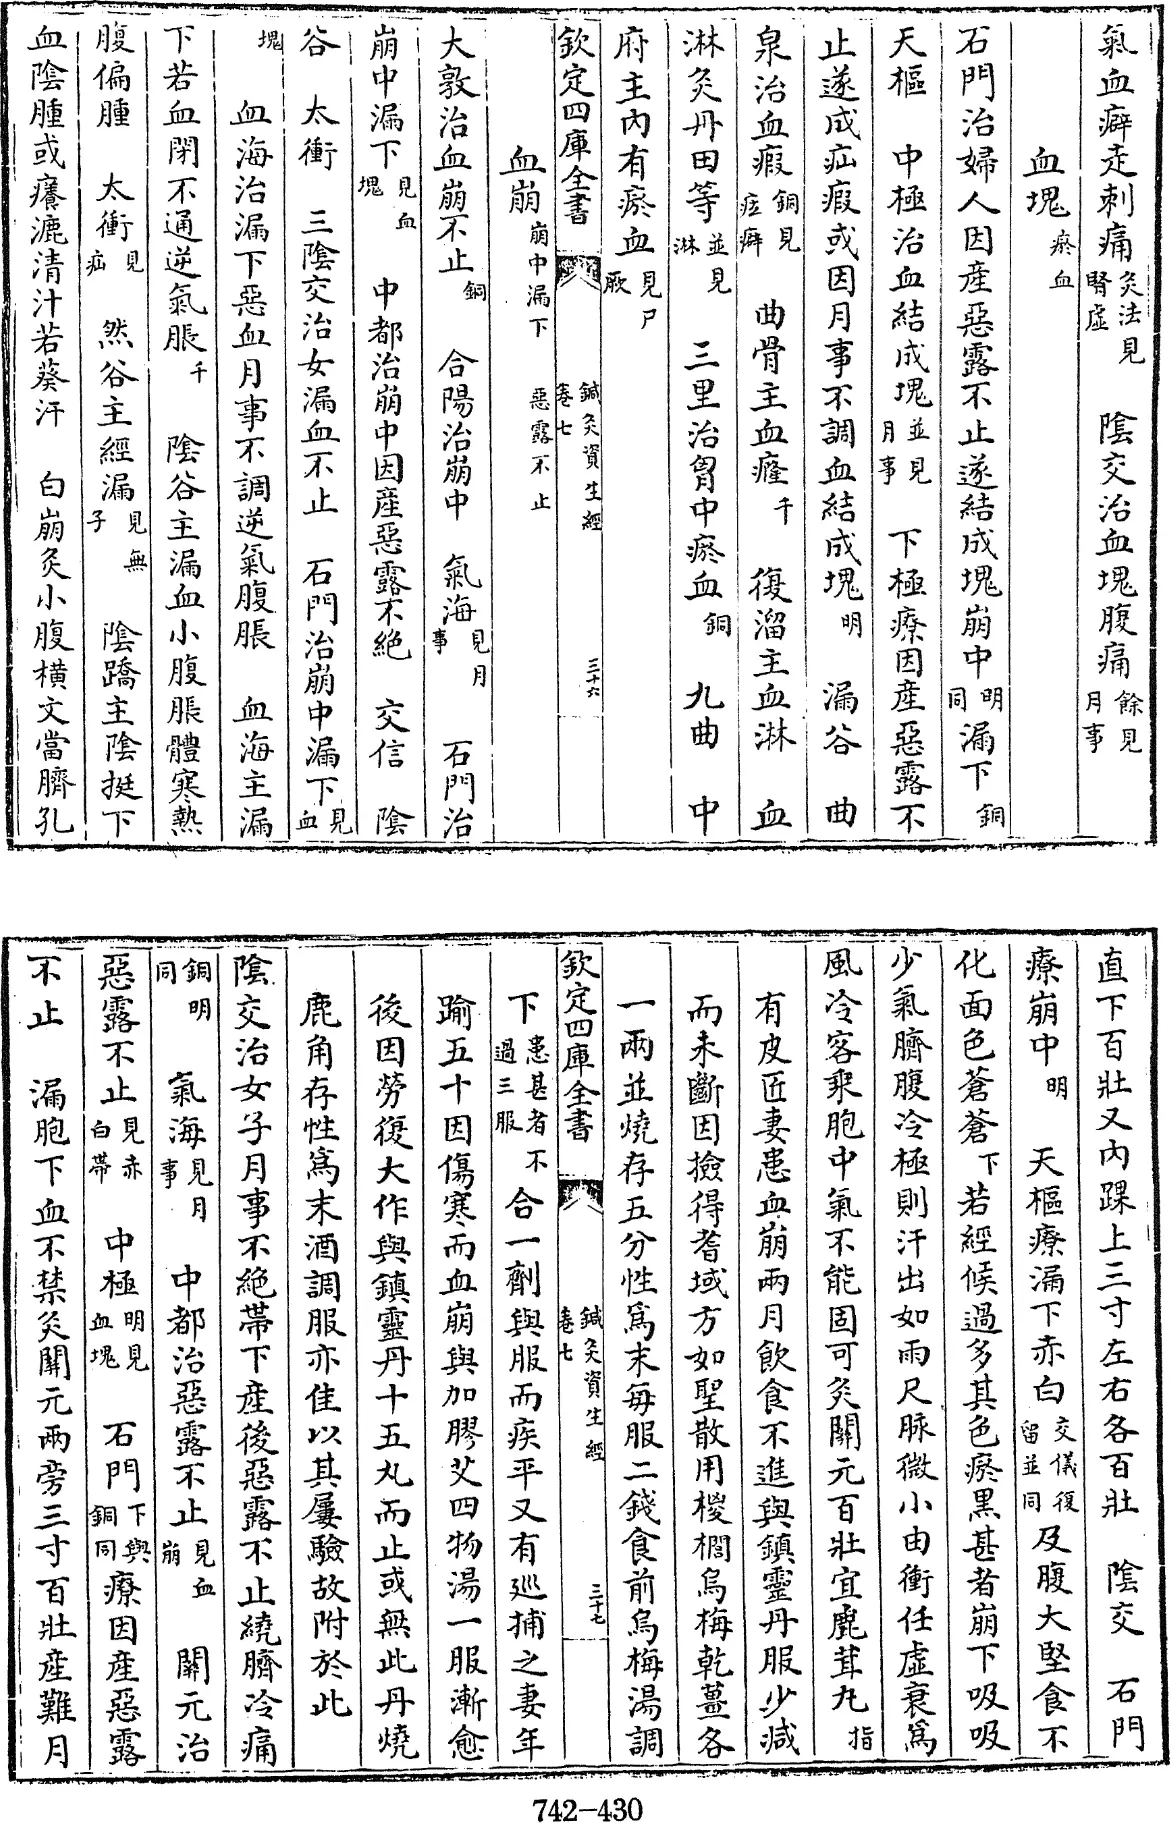 氣血癖走刺痛灸法見腎虛 陰交治血塊腹痛餘見月事
血塊瘀血
石門治婦人因產惡露不止遂結成塊崩中明同漏下銅
天樞 中極治血結成塊並見月事 下極療因產惡露不
止遂成疝瘕或因月事不調血結成塊明 漏谷 曲
泉治血瘕銅見疰癖 曲骨主血癃千 復溜主血淋 血
淋灸丹田等並見淋 三里治胷中瘀血銅 九曲中
府主內有瘀血見尸厥
欽定四庫全書 鍼灸資生經卷七 三十六
血崩崩中漏下 惡露不止
大敦治血崩不止銅 合陽治崩中 氣海見月事 石門治
崩中漏下見血塊 中都治崩中因產惡露不絕 交信 陰
谷 太衝 三陰交治女漏血不止 石門治崩中漏下見血
塊 血海治漏下惡血月事不調逆氣腹脹 血海主漏
下若血閉不通逆氣脹千 陰谷主漏血小腹脹體寒熱
腹偏腫 太衝見疝 然谷主經漏見無子 陰蹻主陰挺下
血陰腫或癢漉清汁若葵汁 白崩灸小腹橫文當臍孔
直下百壯又內踝上三寸左右各百壯 陰交 石門
療崩中明 天樞療漏下赤白交儀復留並同及腹大堅食不
化面色蒼蒼下若經候過多其色瘀黑甚者崩下吸吸
少氣臍腹冷極則汗出如雨尺脉微小由衝任虛衰為
風冷客乘胞中氣不能固可灸關元百壯宜鹿茸丸指
有皮匠妻患血崩兩月飲食不進與鎮靈丹服少減
而未斷因撿得耆域方如聖散用椶櫚烏梅乾薑各
一兩並燒存五分性為末每服二錢食前烏梅湯調
欽定四庫全書 鍼灸資生經卷七 三十七
下患甚者不過三服合一劑與服而疾平又有巡捕之妻年
踰五十因傷寒而血崩與加膠艾四物湯一服漸愈
後因勞復大作與鎮靈丹十五丸而止或無此丹燒
鹿角存性為末酒調服亦佳以其屢驗故附於此
陰交治女子月事不絕帶下產後惡露不止繞臍冷痛
銅明同 氣海見月事 中都治惡露不止見血崩 關元治
惡露不止見赤白帶 中極明見血塊 石門下與銅同療因產惡露
不止 漏胞下血不禁灸關元兩旁三寸百壯產難月
742-430